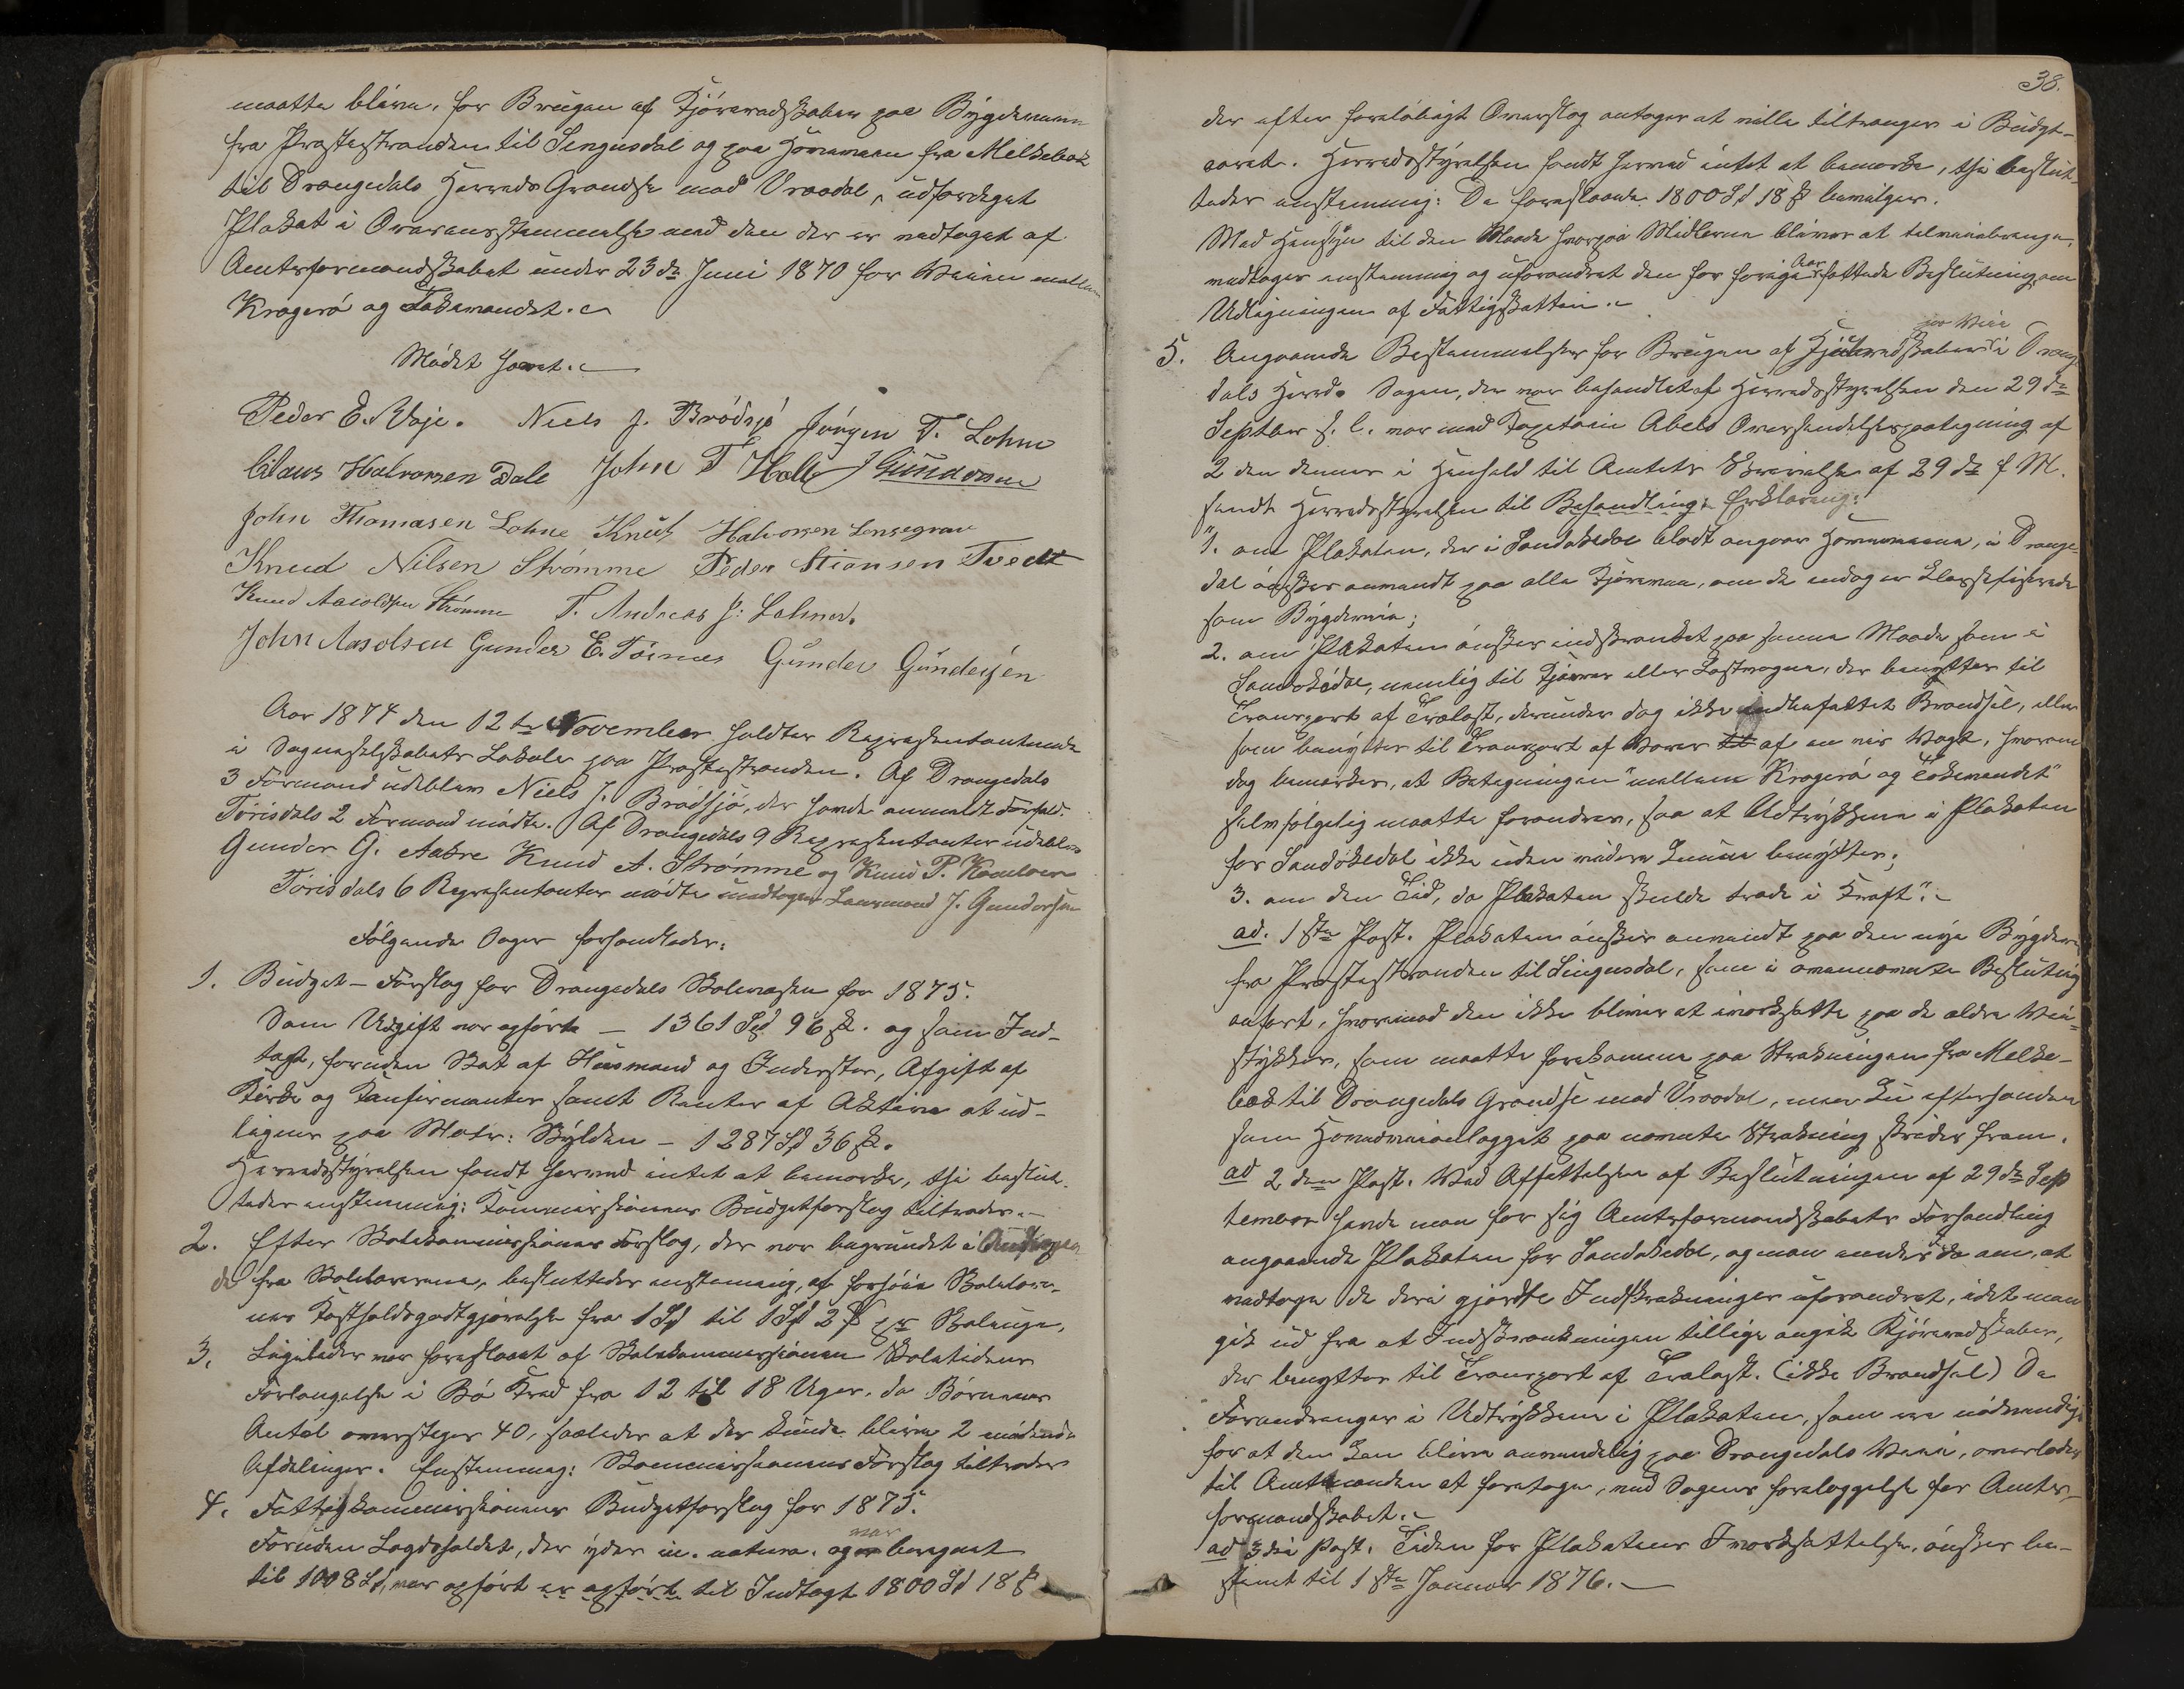 maatte blive, for Brugen af Kjøreredskaber paa Bygdeveien
fra Prestestranden til Lingusdal og paa Hovedveien fra Melkebæk
til Drangedals Herreds Grændse mod Vraadal, udfærdiget
Plakat i Overensstemmelse med den der er vedtaget af
Amtsformandskabet under 23de Juni 1870 for Veien mellem
Kragerø og Tokevandet.
Mødet hævet.
Peder E. Voje. Niels J. Brødsjø Jørgen T. Lohne
Claus Halvorsen Dale John T Holte J Gundersen
John Thomasen Lohne Knut Halvorsen
Knud Nilsen Strømme Peder Stiansen Tvedt
Knud Aasoldsen Strømme T. Andreas J: Lohne.
John Aasolsen Gunder E. Gunder Gundersen
Aar 1874 den 12te November holdtes Repræsentantmøde
i Sogneselskabets Lokale paa Prestestranden. Af Drangedals
3 Formænd udeblev Niels J. Brødsjø, der havde anmeldt Forfald.
Tørisdals 2 Formænd mødte. Af Drangedals 9 Repræsentanter udeblev
Gunder G. Aabre Knud A. Strømme og Knud P.
Tørisdals 6 Repræsentanter mødte undtagen J. Gundersen
Følgende Sager forhandledes:
1. Budget-Forslag for Drangedals Skolevæsen for 1875.
Som Udgift var opførte – 1361 Spd 96 ß. og som Ind-
tægt, foruden Skat af Husmænd og Inderster, Afgift af
Kirke og Konfirmanter samt Renter af Aktiva at ud-
lignes paa Matr: Skylden – 1287 Sp 36 ß.
Herredsstyrelsen fandt herved intet at bemærke, thi beslut-
tedes enstemmig: Kommissionens Budgetforslag tiltrædes.
2. Efter Skolekommissionens Forslag, der var begrundet i Andragen-
de fra Skolelærerne, besluttedes enstemmig, at forhøie Skolelærer-
nes Kostholdsgodtgjørelse fra 1 Sp til 1 Sp 2 ß pr Skoleuge.
3. Ligeledes var foreslaaet af Skolekommissionen Skoletidens
Forlængelse i Bø Kreds fra 12 til 18 Uger, da Børnenes
Antal overstiger 40, saaledes at der kunde blive 2
Afdelinger. Enstemmig: Kommissionens Forslag tiltrædes
4. Fattigkommissionens Budgetforslag for 1875.
Foruden Lægdsholdet, der ydes in. natura. og var beregnet
til 1008 Sp, var opført er opført til Indtægt 1800 Sp 18 ß
38.
der efter foreløbigt Overslag antages at ville tiltrænges i Budget-
aaret. Herredsstyrelsen fandt herved intet at bemærke, thi beslut-
tedes enstemmig: De foreslaaede 1800 Sp 18 ß bevilges.
Med Hensyn til den Maade hvorpaa Midlerne bliver at tilveiebringe,
vedtages enstemmig og uforandret den for forrige Aar fattede Beslutning om
Udligningen af Fattigskatten.
5. Angaaende Bestemmelser for Brugen af Kjøreredskaber paa Veie i Drange-
dals Herred. Sagen, der var behandlet af Herredsstyrelsen den 29de
Septbr f. l. var med Kaptain Abels Oversendelsespaategning af
2 den dennes i Henhold til Amtets Skrivelse af 29de f M.
sendt Herredsstyrelsen til Behandling Erklæring:
"1. om Plakaten, der i Sandøkedal blot angaar Hovedveiene, i Drange-
dal ønskes anvendt paa alle Kjøreveie, om de endog er klassificerede
som Bygdeveie;
2. om Plakaten ønskes indskrænket paa samme Maade som i
Sandøkedal, nemlig til Kjærrer eller Lastvogne, der benyttes til
Transport af Trælast, derunder dog ikke indbefattet Brændsel, eller
som benyttes til Transport af Varer til af en vis Vægt, hvorom
dog bemærkes, at Betegningen "mellem Kragerø og Tokevandet"
selvfølgelig maatte forandres, saa at Udtrykkene i Plakaten
for Sandøkedal ikke uden videre kunne benyttes;
3. om den Tid, da Plakaten skulde træde i Kraft".
ad. 1ste Post. Plakaten ønskes anvendt paa den nye Bygdevei
fra Prestestranden til Lingusdal, som i ovennævnte Beslutning
anført, hvorimod den ikke bliver at iværksætte paa de ældre Vei-
stykker, som maatte forekomme paa Strækningen fra Melke-
bæk til Drangedals Grændse mod Vraadal, men kun eftersom
som Hovedveianlægget paa nævnte Strækning skrider frem.
ad 2 den Post. Ved Affattelsen af Beslutningen af 29de Sep
tember havde man for sig Amtsformandskabets Forhandling
angaaende Plakaten for Sandøkedal, og man enedes da om, at
vedtage de deri gjordte Indskrænkninger uforandret, idet man
gik ud fra at Indskrænkningen tillige angik Kjøreredskaber,
der benyttes til Transport af Trælast. (ikke Brændsel) De
Forandringer i Udtrykkene i Plakaten, som ere nødvendige
for at den kan blive anvendelig paa Drangedals Veie, overlades
til Amtmanden at foretage, ved Sagens forelæggelse for Amts-
formandskabet.
ad 3die Post. Tiden for Plakatens Iværksættelse, ønskes be-
stemt til 1ste Januar 1876.